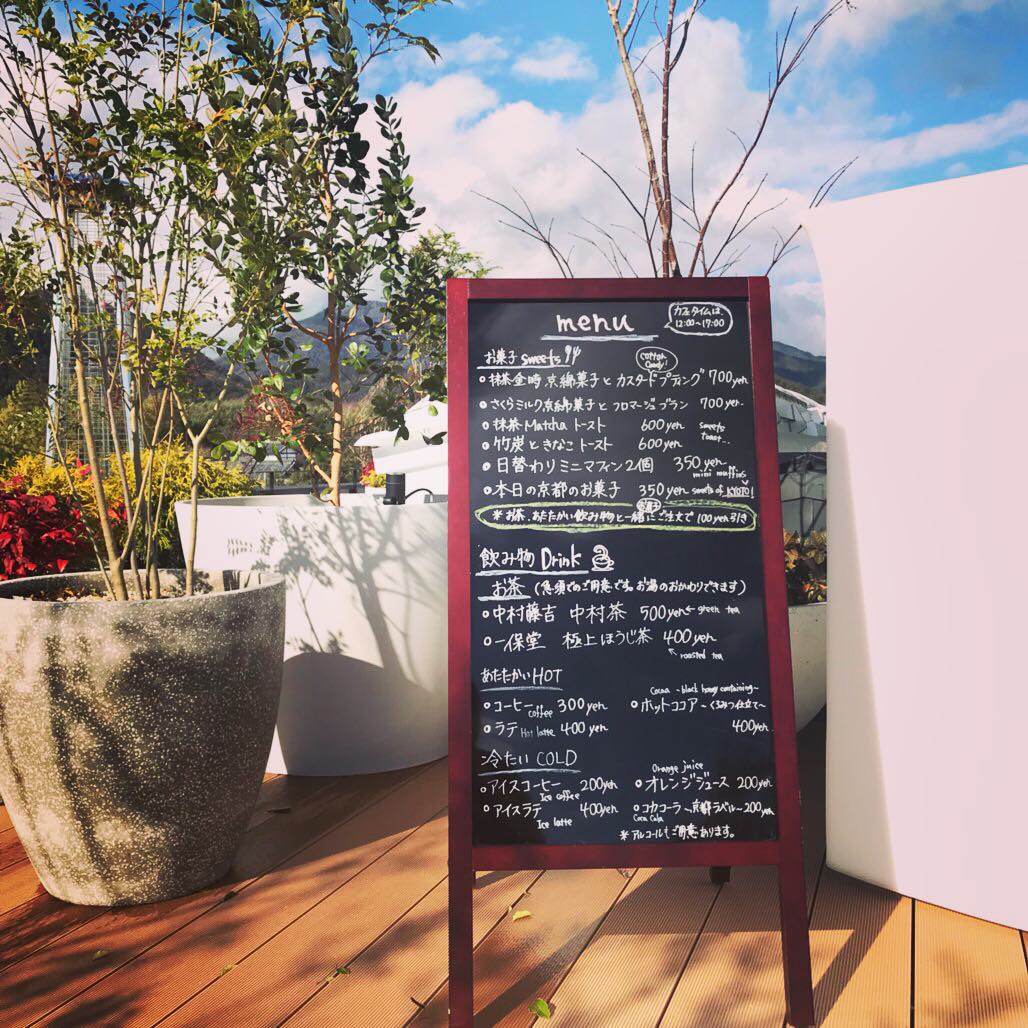 menu
カフェタイムは、
12:00~17:00
お菓子 sweets
cotton
candy!
抹茶金時 京綿菓子と カスタードプディング 700yen
さくらミルク京綿菓子と フロマージュブラン 700yen
抹茶 Matcha トースト 600yen
竹炭ときなこ トースト 600yen
sweets
toast..
日替わりミニマフィン2個 350yen
mini muffins
本日の京都のお菓子 350yen sweets of KYOTO!
お菓子
*お茶、あたたかい飲み物と一緒にご注文で 100yen引き
飲み物 Drink
お茶 (急須でのご用意です。お湯のおかわりできます)
中村藤吉 中村茶 500yen ← green tea
一保堂 極上ほうじ茶 400yen
↖ roasted tea
あたたかい HOT
コーヒー 300yen
coffee
ラテ Hot latte 400yen
Cocoa ~black honey containing~
ホットココア ~くろみつ仕立て~
400yen
冷たい COLD
アイスコーヒー 200yen
Ice coffee
アイスラテ 400yen
Ice latte
Orange juice
オレンジジュース 200yen
コカコーラ ~京都ラベル~ 200yen
Coca Cola
*アルコールもご用意あります。